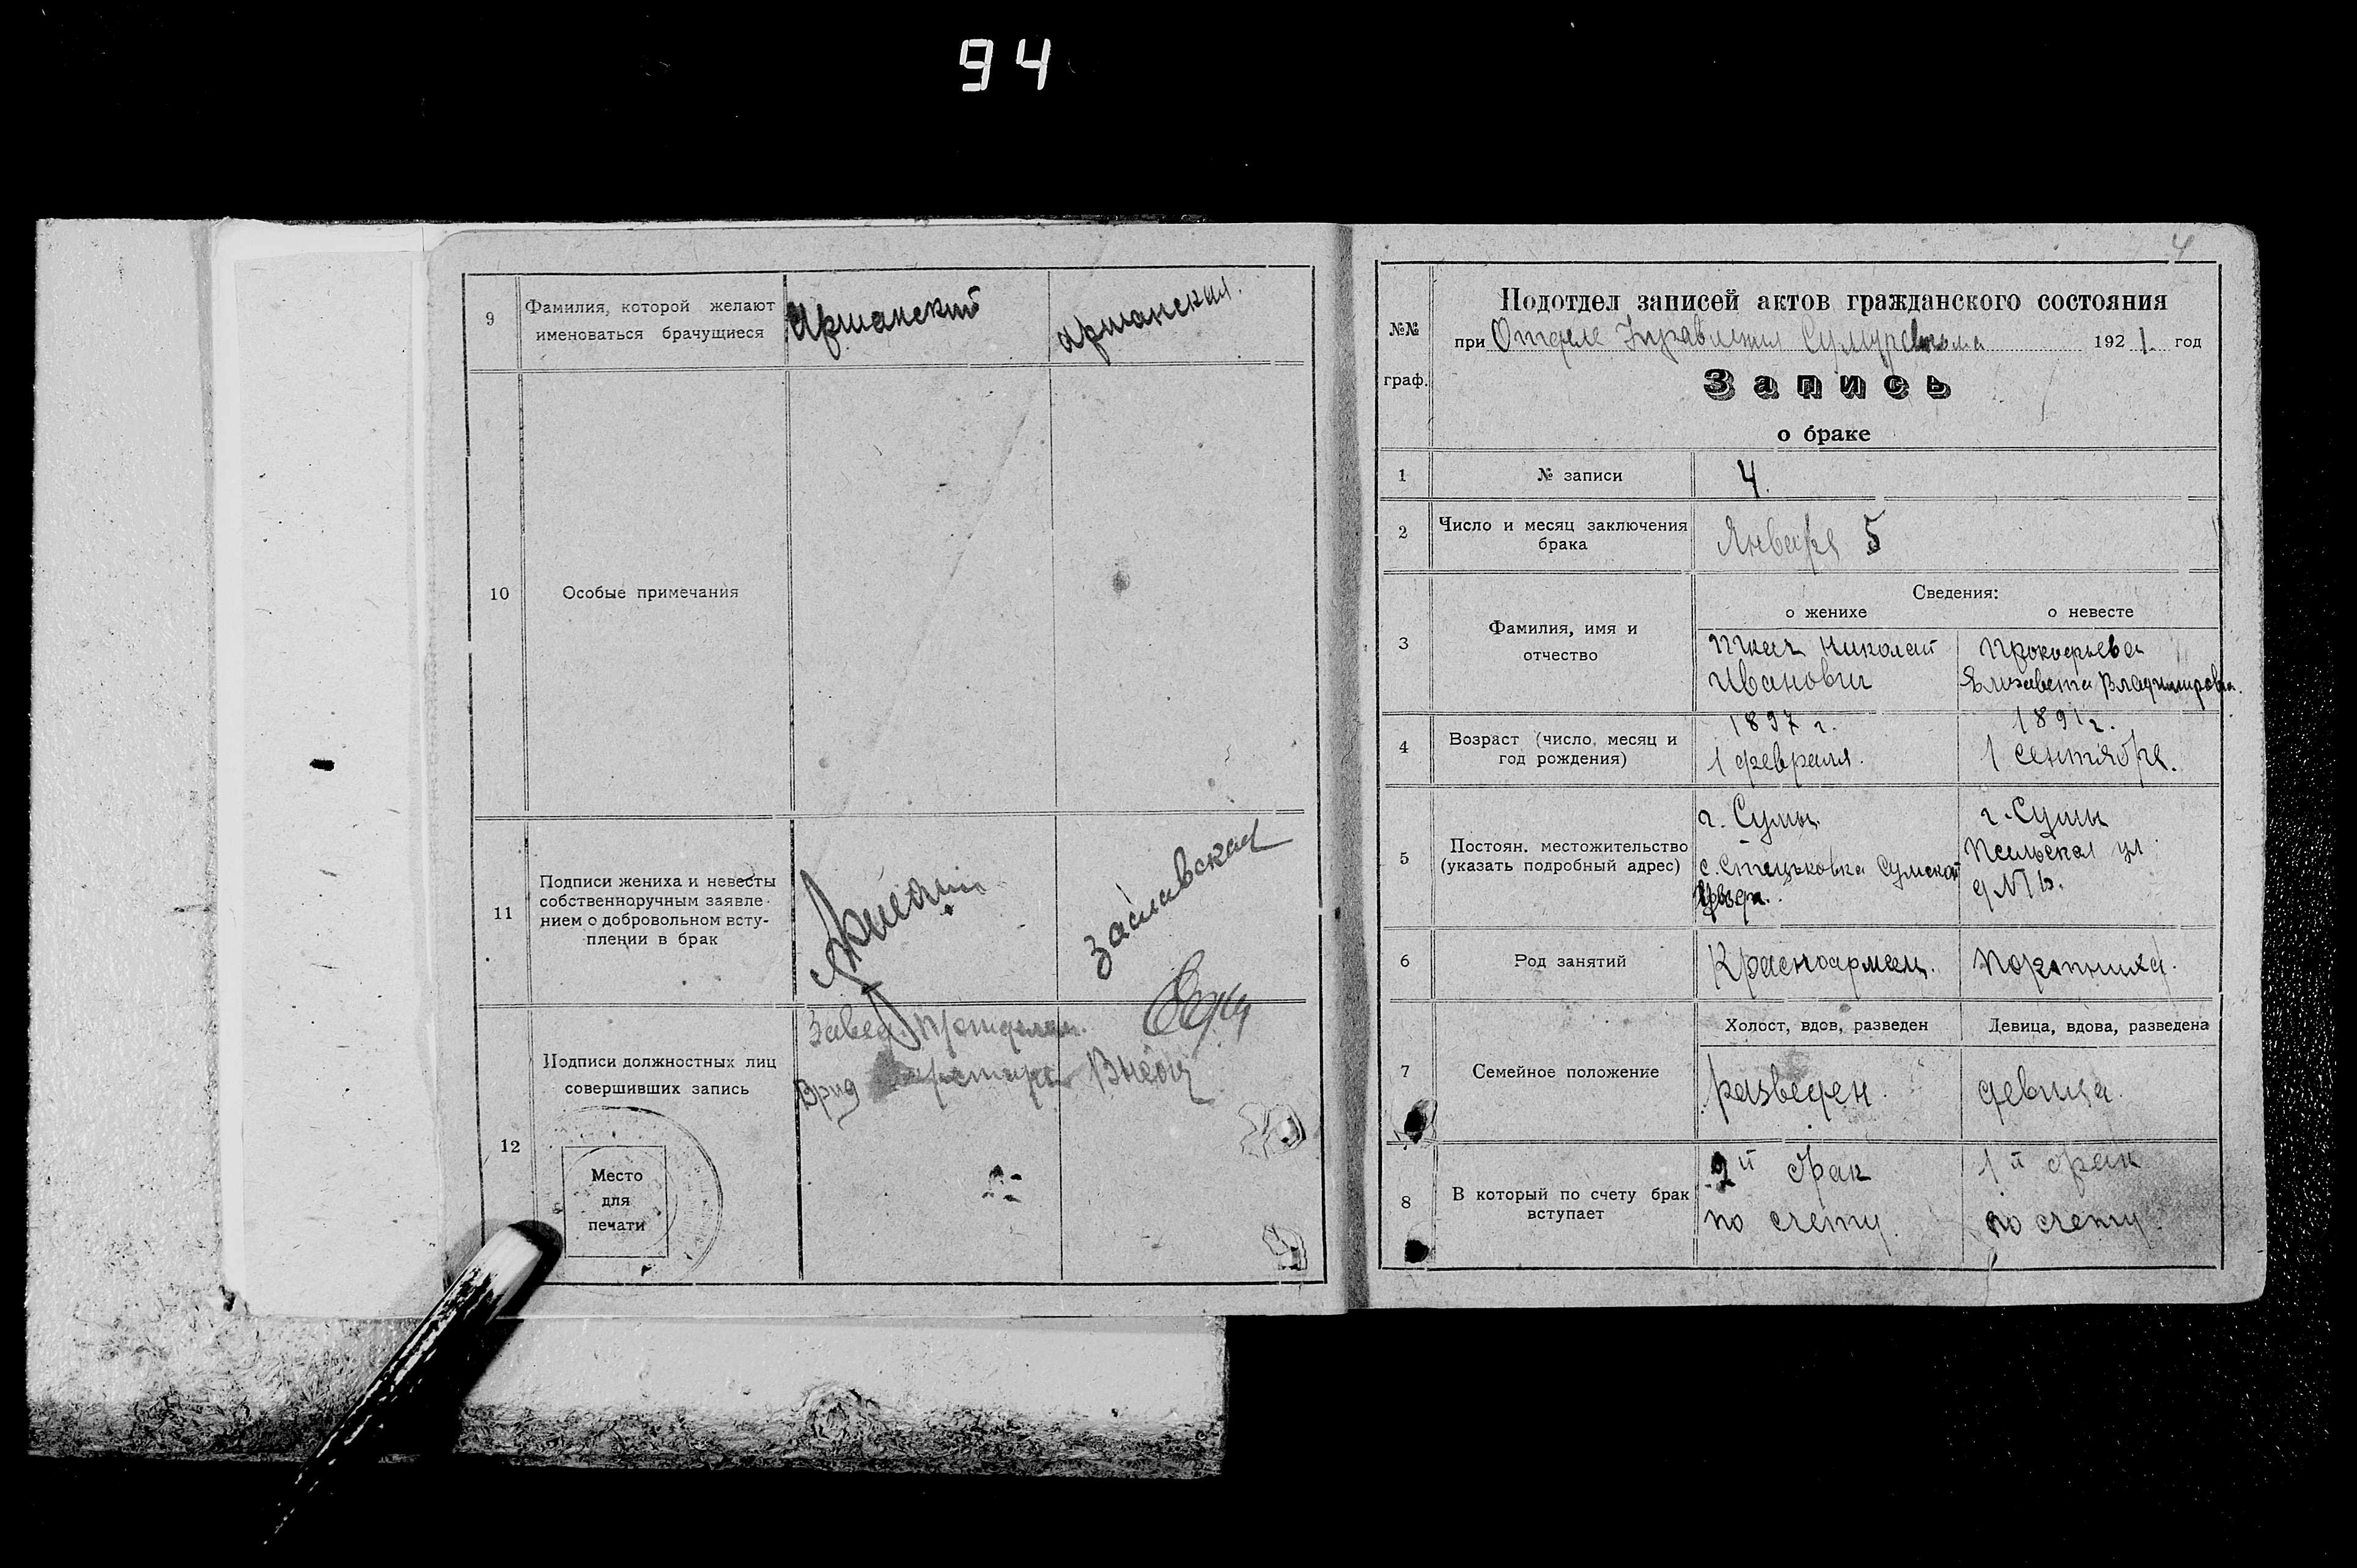 94
9
Фамилия, которой желают
именоваться брачущиеся
Аршанский
аршанская.
10
Особые примечания
11
Подписи жениха и невесты
собственноручным заявле-
нием о добровольном всту-
плении в брак
Заславская
12
Подписи должностных лиц
совершивших запись
Завед.
Врид
Место
для
печати
4
№№
граф.
Подотдел записей актов гражданского состояния
при Отделе Управления 1921. год
Запись
о браке
1
№ записи
4.
2
Число и месяц заключения
брака
Января 5
3
Фамилия, имя и
отчество
Сведения:
о женихе
о невесте
Ткач Николай
Иванович
Прокофьева
Елизавета Владимировна.
4
Возраст (число, месяц и
год рождения)
1897 г.
1 февраля.
1891 г.
1 сентября.
5
Постоян. местожительство
(указать подробный адрес)
г. Сумы
с. Стецьковка Сумской
г. Сумы
Псельская ул.
6
Род занятий
Красноармеец.
портниха.
7
Семейное положение
Холост, вдов, разведен
Девица, вдова, разведена
разведен.
девица.
8
В который по счету брак
вступает
2й брак
по счету.
1й брак
по счету.